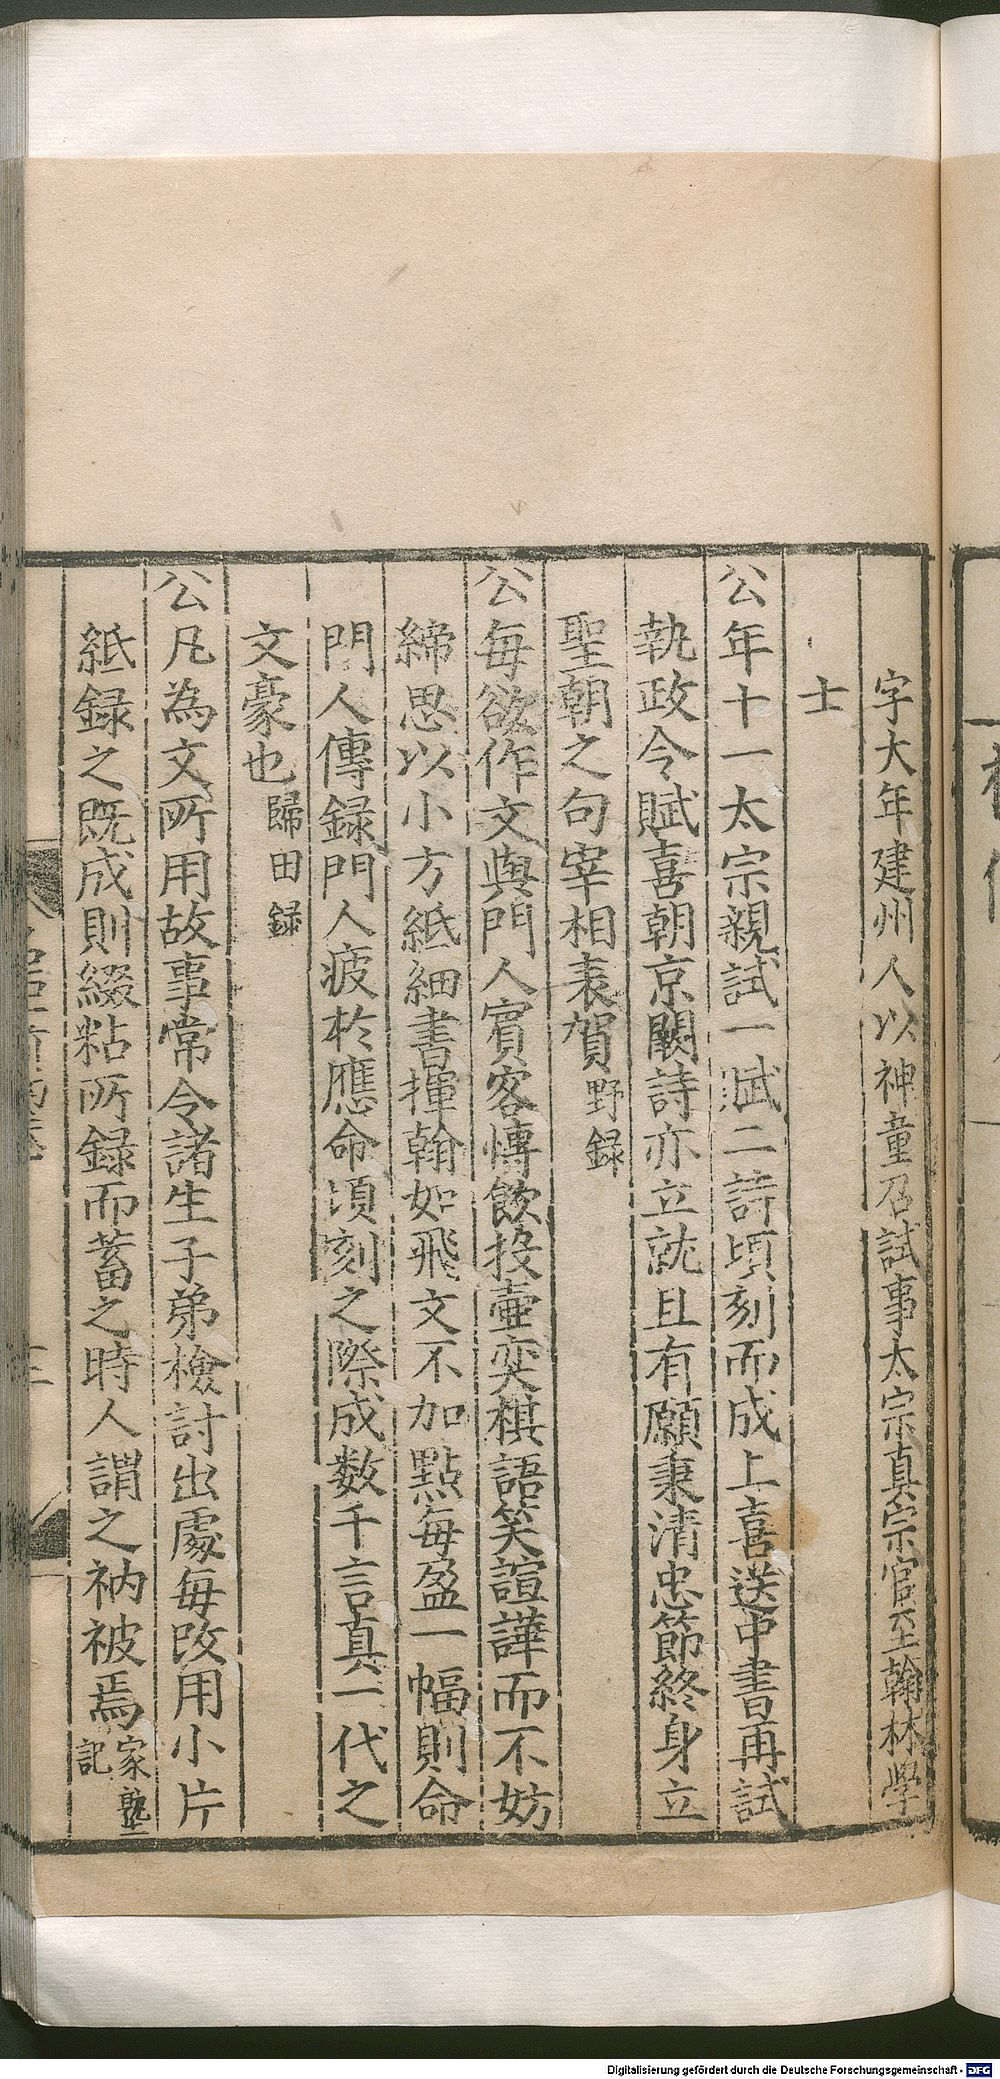 字大年建州人以神童召試事太宗真宗官至翰林學
士
公年十一太宗親試一賦二詩頃刻而成上喜送中書再試
執政令賦喜朝京闕詩亦立就且有願秉清忠節終身立
聖朝之句宰相表賀野録
公每欲作文與門人賓客慱飲投壷奕棋語笑諠譁而不妨
締思以小方紙細書揮翰如飛文不加點每盈一幅則命
門人傳録門人疲於應命頃刻之際成数千言真一代之
文豪也歸田録
公凡為文所用故事常令諸生子弟檢討出處每攺用小片
紙録之既成則綴粘所録而蓄之時人謂之衲被焉家塾記
Digitalisierung gefördert durch die Deutsche Forschungsgemeinschaft - DFG